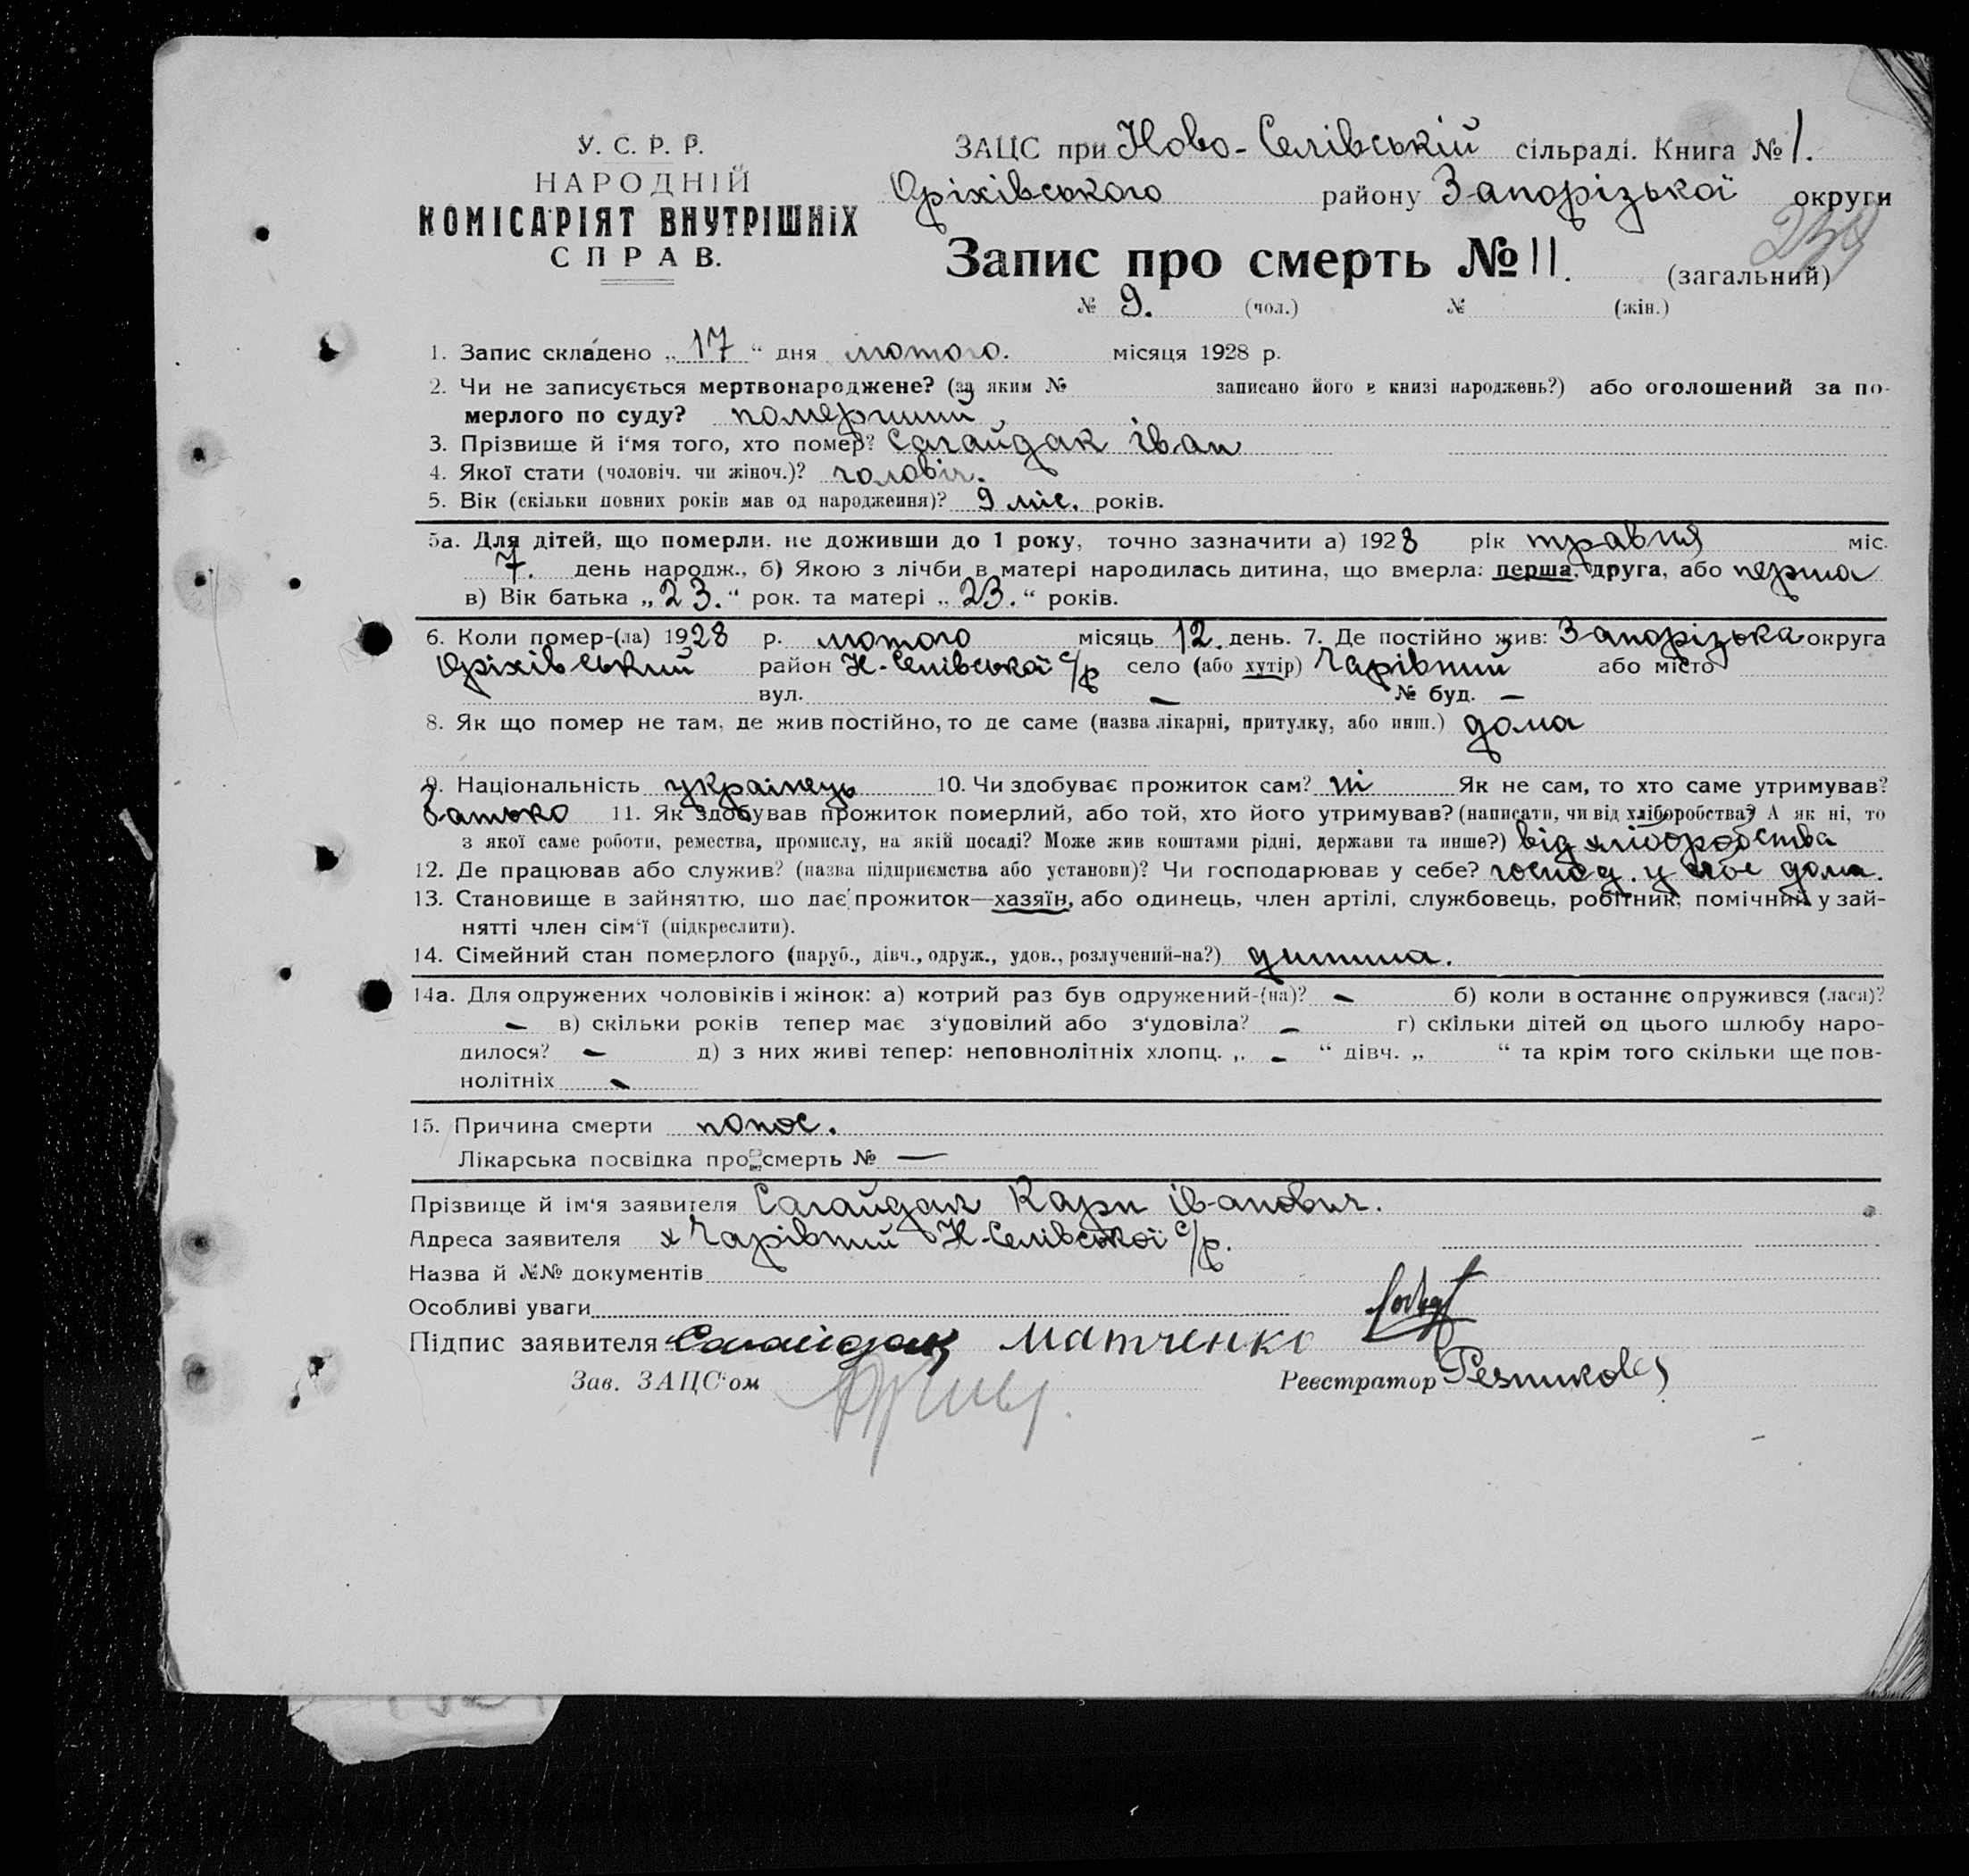 У. С. Р. Р.
НАРОДНІЙ
КОМІСАРІЯТ ВНУТРІШНІХ
СПРАВ.
ЗАЦС при Ново-Селівській сільраді. Книга № 1.
Оріхівського району Запорізької округи
Запис про смерть № 11. (загальний)
№ 9. (чол.) № (жін.)
1. Запис складено „ 17 “ дня лютого. місяця 1928 р.
2. Чи не записується мертвонароджене? (за яким № записано його в книзі народжень?) або оголошений за по-
мерлого по суду? померший
3. Прізвище й і‘мя того, хто помер? Сагайдак Іван
4. Якої стати (чоловіч. чи жіноч.)? чоловіч.
5. Вік (скільки повних років мав од народження)? 9 міс. років.
5а. Для дітей, що померли, не доживши до 1 року, точно зазначити а) 1928 рік травня міс.
7. день народж., б) Якою з лічби в матері народилась дитина, що вмерла: перша, друга, або перша
в) Вік батька „ 23. “ рок. та матері „ 23. “ років.
6. Коли помер-(ла) 1928 р. лютого місяць 12. день. 7. Де постійно жив: Запорізька округа
Оріхівський район Н-Селівської с/р село (або хутір) Чарівний або місто
вул. — № буд. —
8. Як що помер не там, де жив постійно, то де саме (назва лікарні, притулку, або инш.) дома
9. Національність украінець 10. Чи здобуває прожиток сам? ні Як не сам, то хто саме утримував?
батько 11. Як здобував прожиток померлий, або той, хто його утримував? (написати, чи від хліборобства? А як ні, то
з якої саме роботи, ремества, промислу, на якій посаді? Може жив коштами рідні, держави та инше?) від хліборобства
12. Де працював або служив? (назва підприємства або установи)? Чи господарював у себе? господ. у себе дома.
13. Становище в зайняттю, що дає прожиток—хазяїн, або одинець, член артілі, службовець, робітник, помічний у зай-
нятті член сім‘ї (підкреслити).
14. Сімейний стан померлого (паруб., дівч., одруж., удов., розлучений-на?) дитина.
14а. Для одружених чоловіків і жінок: а) котрий раз був одружений-(на)? — б) коли в останнє одружився (лася)?
— в) скільки років тепер має з‘удовілий або з‘удовіла? — г) скільки дітей од цього шлюбу наро-
дилося? — д) з них живі тепер: неповнолітніх хлопц. „ — “ дівч. „ “ та крім того скільки ще пов-
нолітніх —
15. Причина смерти понос.
Лікарська посвідка про смерть № —
Прізвище й ім‘я заявителя Сагайдак Карп Іванович.
Адреса заявителя х Чарівний Н-Селівської с/р.
Назва й №№ документів
Особливі уваги
Підпис заявителя Сагайдак Матченко
Зав. ЗАЦС‘ом Реєстратор Резников